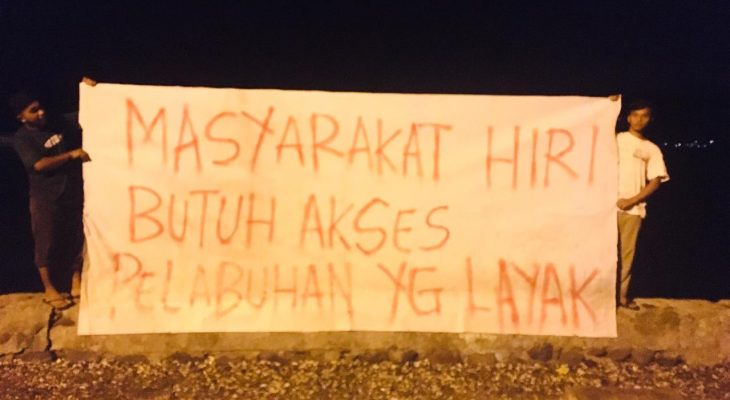 MASYARAKAT HIRI
BUTUH AKSES
PELABUHAN YG LAYAK